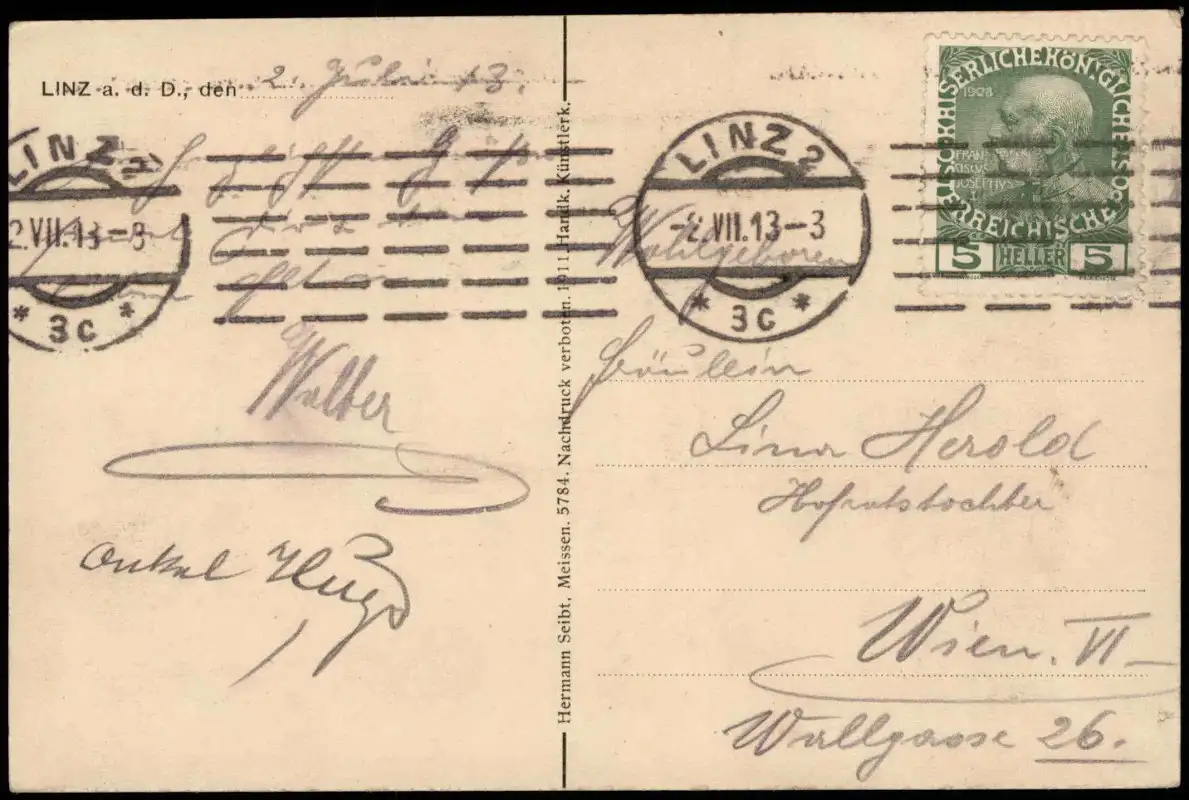 LINZ a. d. D., den 2. Juli 13.
LINZ 2
2.VII.13-3
* 3c *
Walter
Onkel Hugo
Hermann Seibt, Meissen. 5784. Nachdruck verboten. 1911. Handk. Künstlerk.
LINZ 2
-2.VII.13-3
* 3c *
KAISERLICHE KÖNIGLICHE ÖSTERREICHISCHE POST
1908
FRAN
CISCVS
JOSEPHVS
5 HELLER 5
Wohlgeboren
Fräulein
Lina Herold
Hofratstochter
Wien. VI
Wallgasse 26.